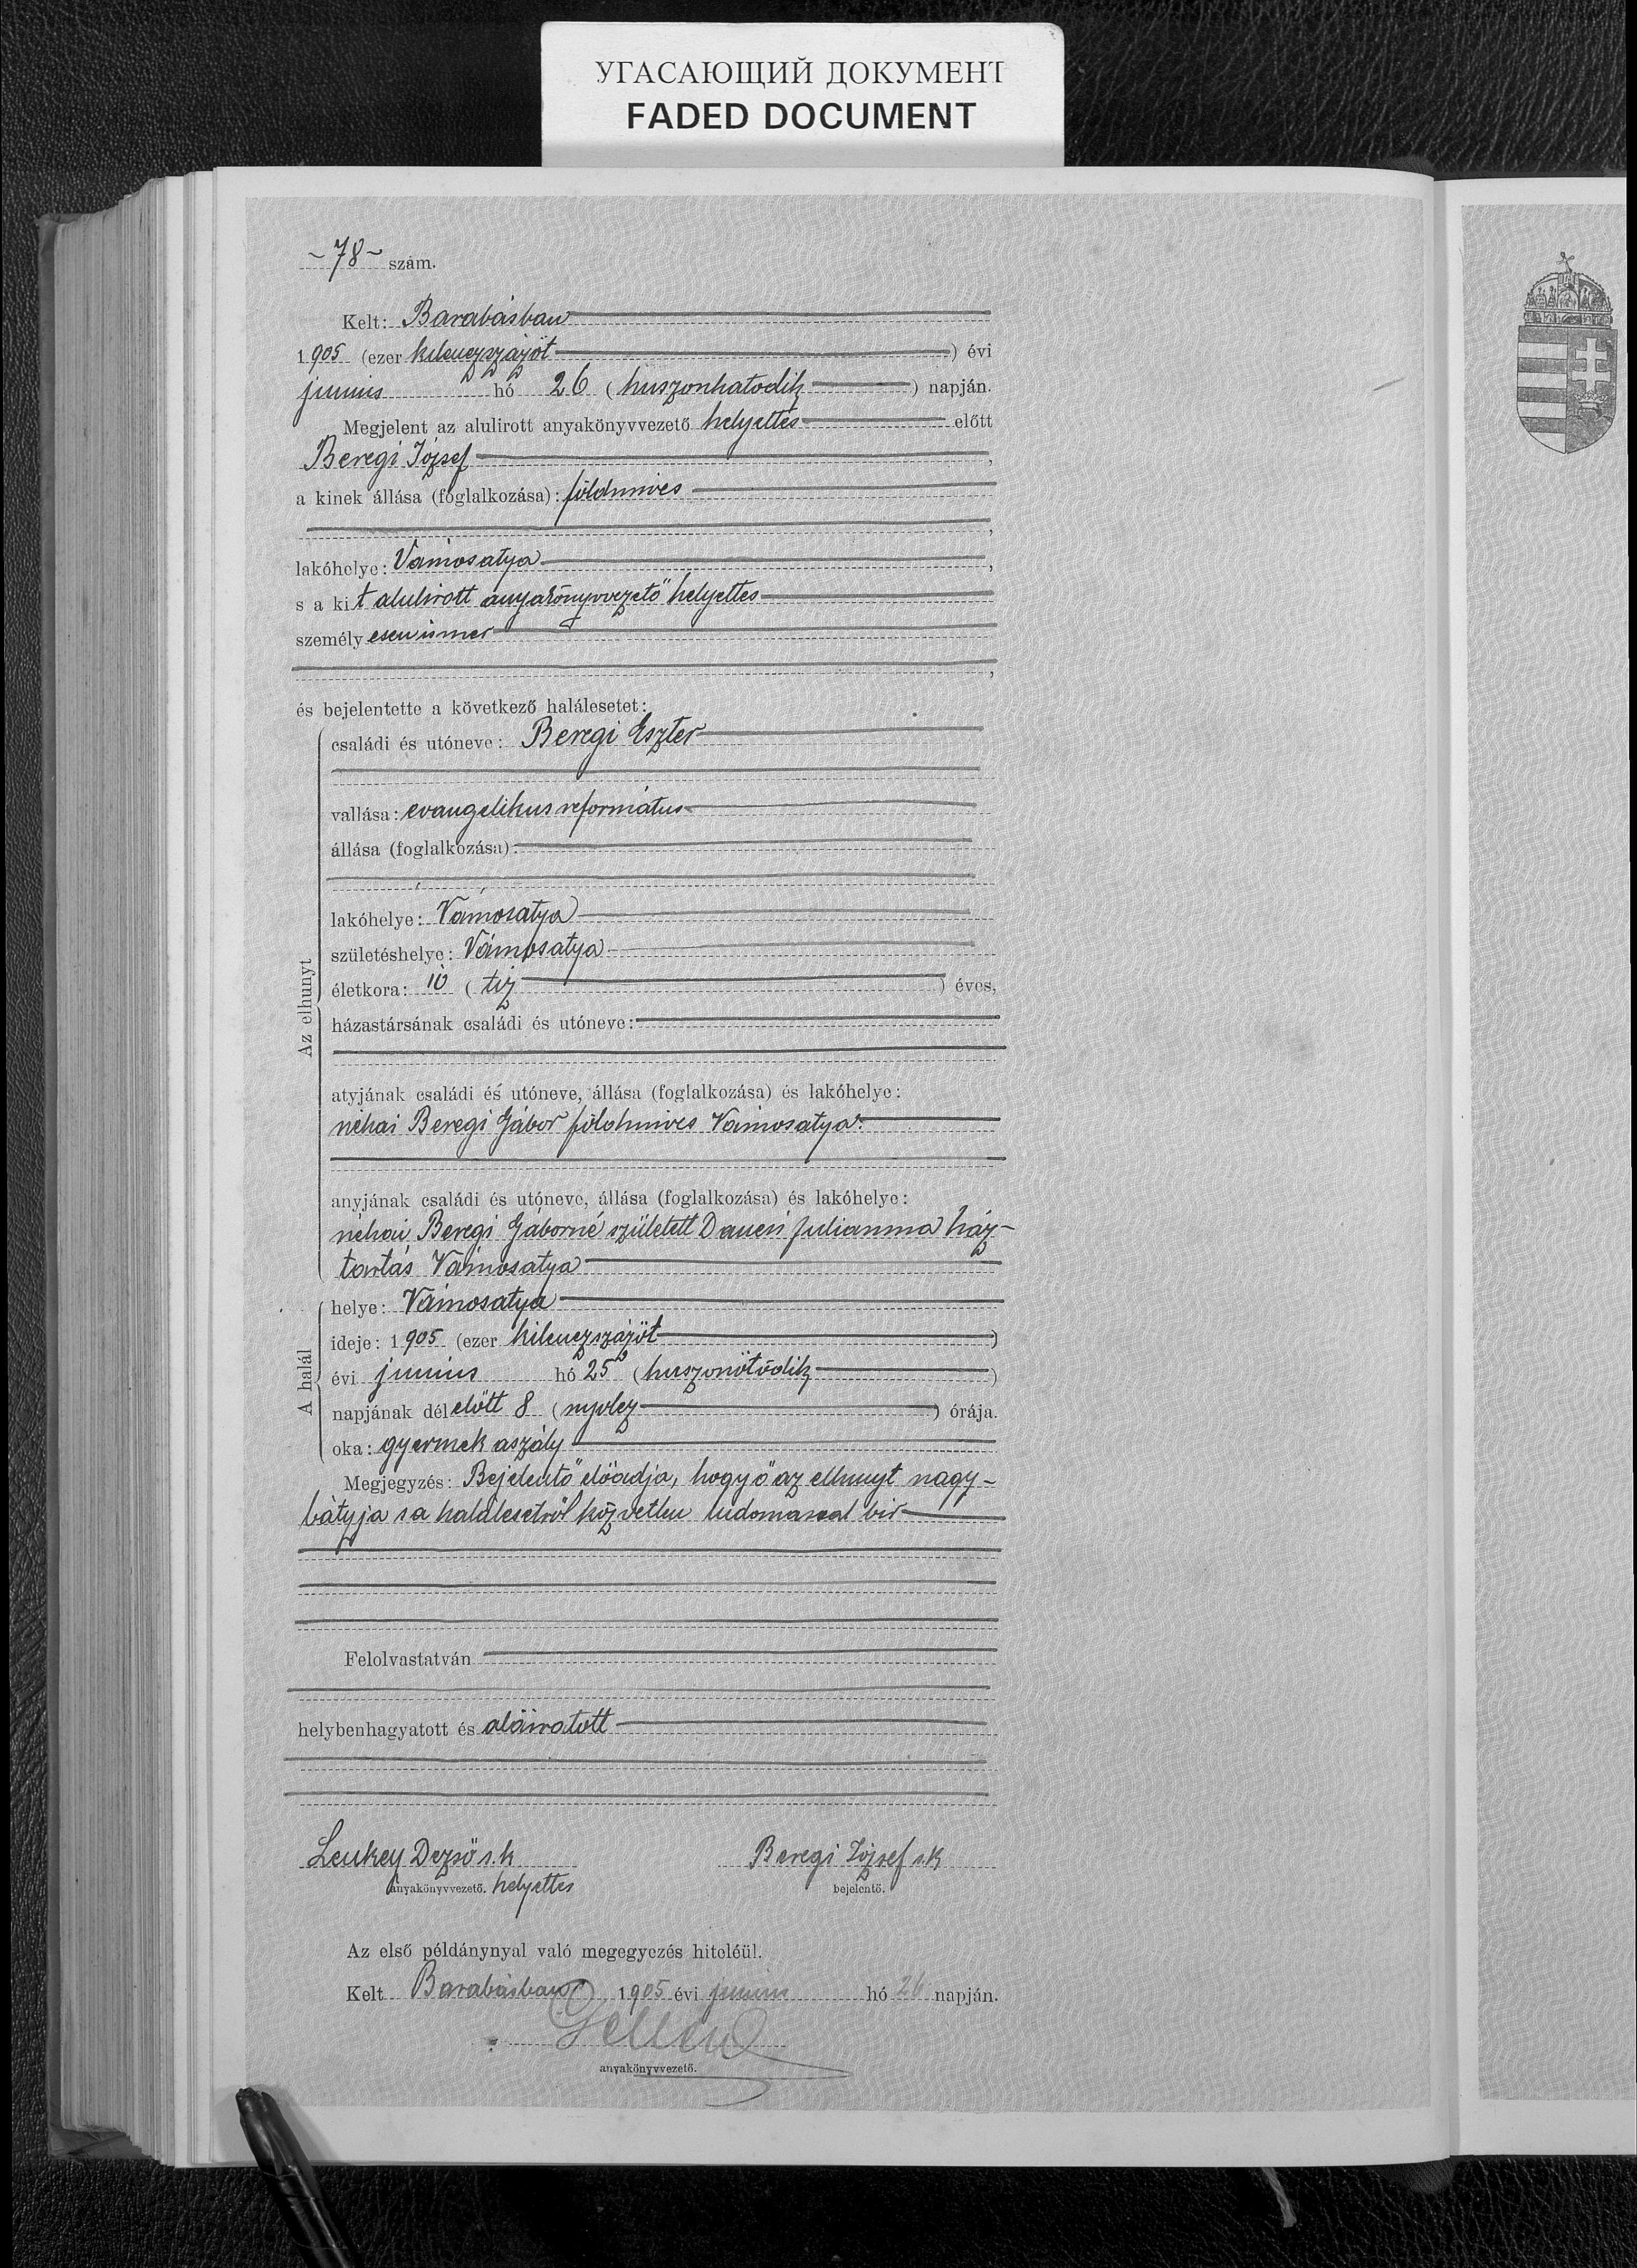 УГАСАЮЩИЙ ДОКУМЕНТ
FADED DOCUMENT
~78~ szám.
Kelt: Barabásban
1905 (ezer kilenczszázöt) évi
junius hó 26 (huszonhatodik) napján.
Megjelent az alulirott anyakönyvvezető helyettes előtt
Beregi József,
a kinek állása (foglalkozása): földmives
,
lakóhelye: Vámosatya,
s a kit alulirott anyakönyvvezető helyettes
személyesen ismer
,
és bejelentette a következő halálesetet:
Az elhunyt
családi és utóneve: Beregi Eszter
vallása: evangelikus református
állása (foglalkozása):
lakóhelye: Vámosatya
születéshelye: Vámosatya
életkora: 10 (tiz) éves,
házastársának családi és utóneve:
atyjának családi és utóneve, állása (foglalkozása) és lakóhelye:
néhai Beregi Gábor földmives Vámosatya.
anyjának családi és utóneve, állása (foglalkozása) és lakóhelye:
néhai Beregi Gáborné született Julianna ház-
tartás Vámosatya
A halál
helye: Vámosatya
ideje: 1905 (ezer kilenczszázöt)
évi junius hó 25 (huszonötödik)
napjának délelőtt 8 (nyolcz) órája.
oka: gyermek aszály
Megjegyzés: Bejelentő előadja, hogy ő az elhunyt nagy-
bátyja s a halálesetről közvetlen tudomással bir
Felolvastatván
helybenhagyatott és aláiratott
Leukey Dezső s.k. Beregi József s.k.
anyakönyvvezető. helyettes bejelentő.
Az első példánynyal való megegyezés hiteléül.
Kelt Barabásban 1905 évi junius hó 26 napján.
anyakönyvvezető.